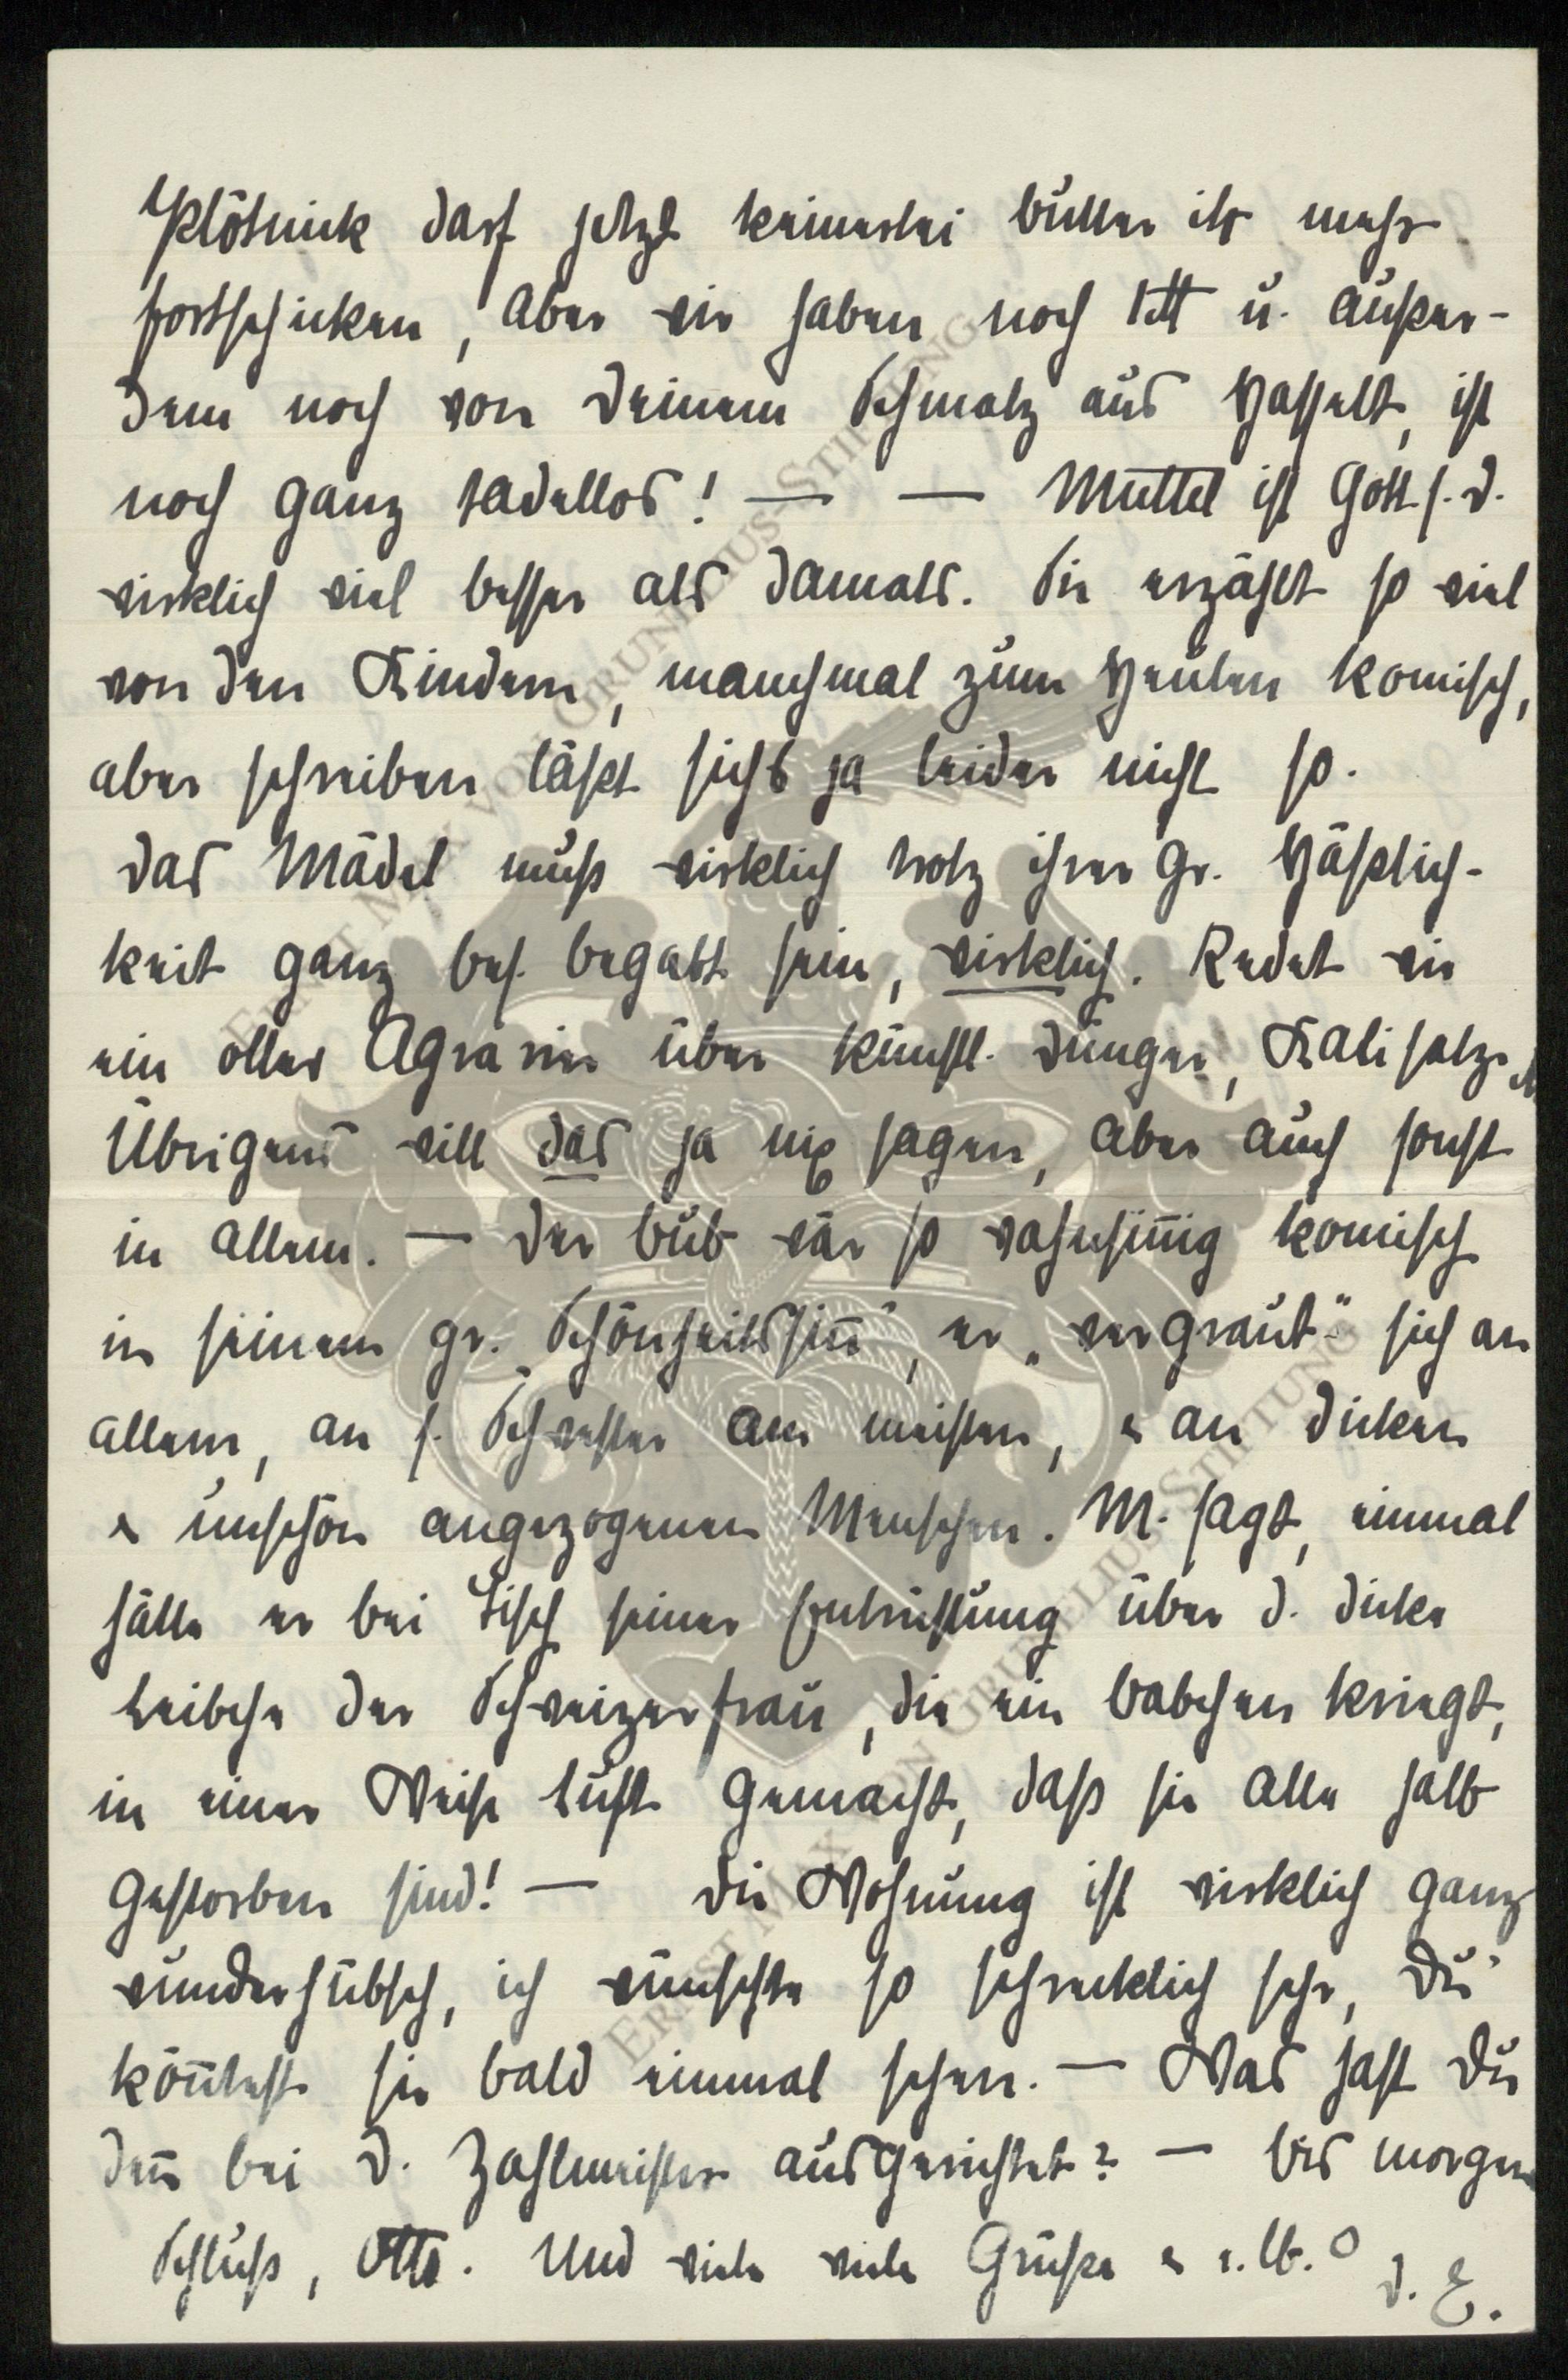 Plötnick darf jetzt keinerlei Butter etc mehr
fortschicken, aber wir haben noch 1 tt u. außer-
dem noch von Deinem Schmalz aus Hasselt, ist
noch ganz tadellos! — — Muttel ist Gott s. d.
wirklich viel besser als damals. Sie erzählt so viel
von den Kindern, manchmal zum Heulen komisch,
aber schreiben läßt sichs ja leider nicht so.
Das Mädel muß wirklich trotz ihrer gr. Häßlich-
keit ganz bes. begabt sein, wirklich. Redet wie
ein oller Agrarier über künstl. Dünger, Kalisalze
Übrigens will das ja nix sagen, aber auch sonst
in allem. — Der Bub wär so wahnsinnig komisch
in seinem gr. „Schönheitssinn", er „vergraut" sich an
allem, an s. Schwester am meisten, & an dicken
& unschön angezogenen Menschen. M. sagt, einmal
hätte er bei Tisch seiner Entrüstung über d. dicke
Leibche der Schweizerfrau, die ein Babchen kriegt,
in einer Weise Luft gemacht, daß sie alle halb
gestorben sind! — Die Wohnung ist wirklich ganz
wunderhübsch, ich wünschte so schrecklich sehr, Du
könntest sie bald einmal sehen. — Was hast Du
denn bei d. Zahlmeister ausgerichtet? — Bis morgen
Schluß, Otto. Und viele viele Grüße & e. lb. O
D. E.
ERNST MAX VON GRUNELIUS-STIFTUNG
ERNST MAX VON GRUNELIUS-STIFTUNG